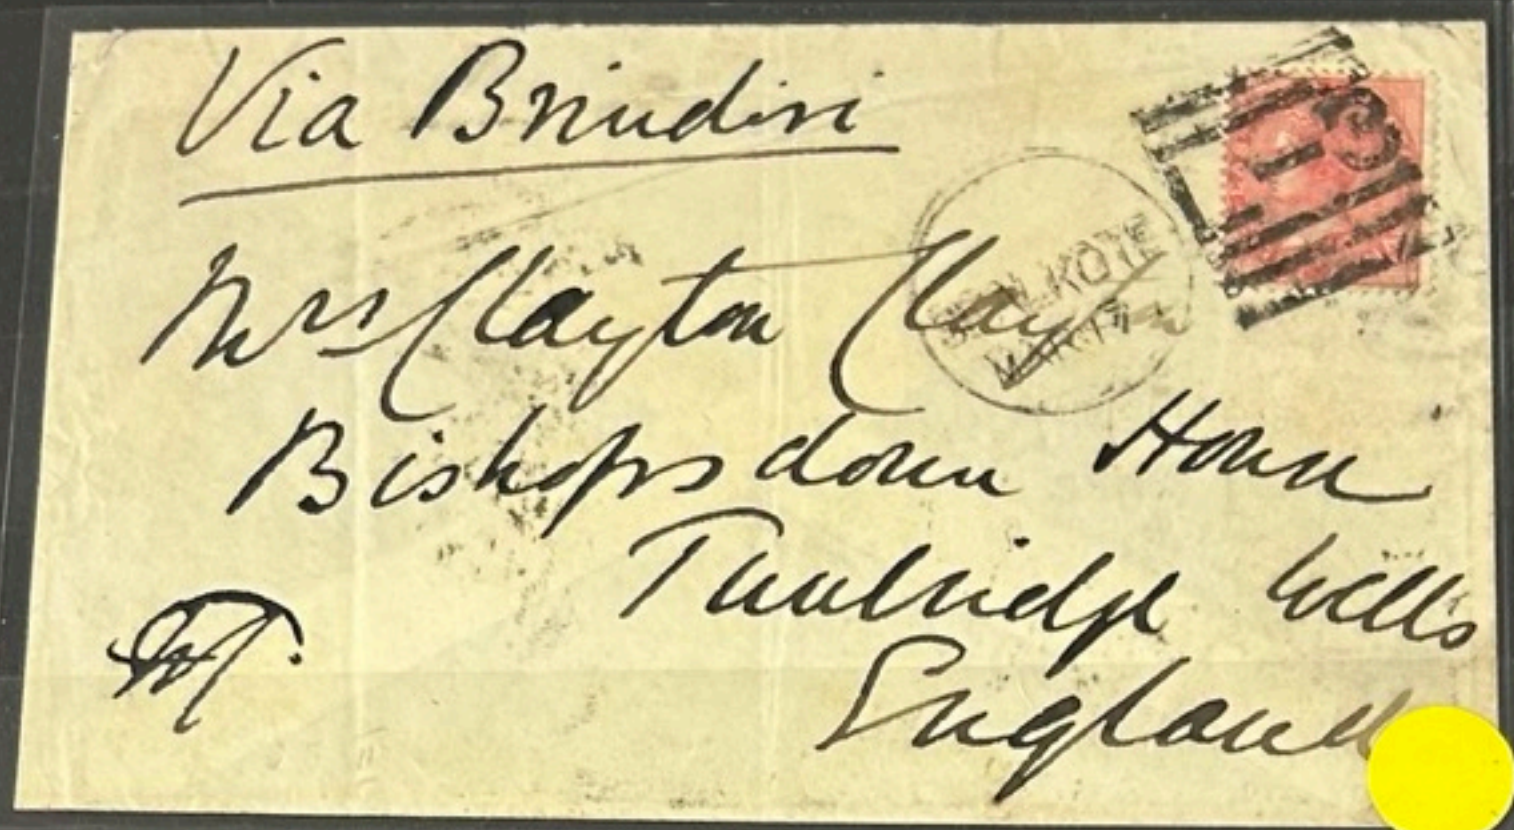 Via Brindisi
L-3
SEALKOTE
Mrs Clayton Clayton
Bishopsdown House
Tunbridge Wells
England